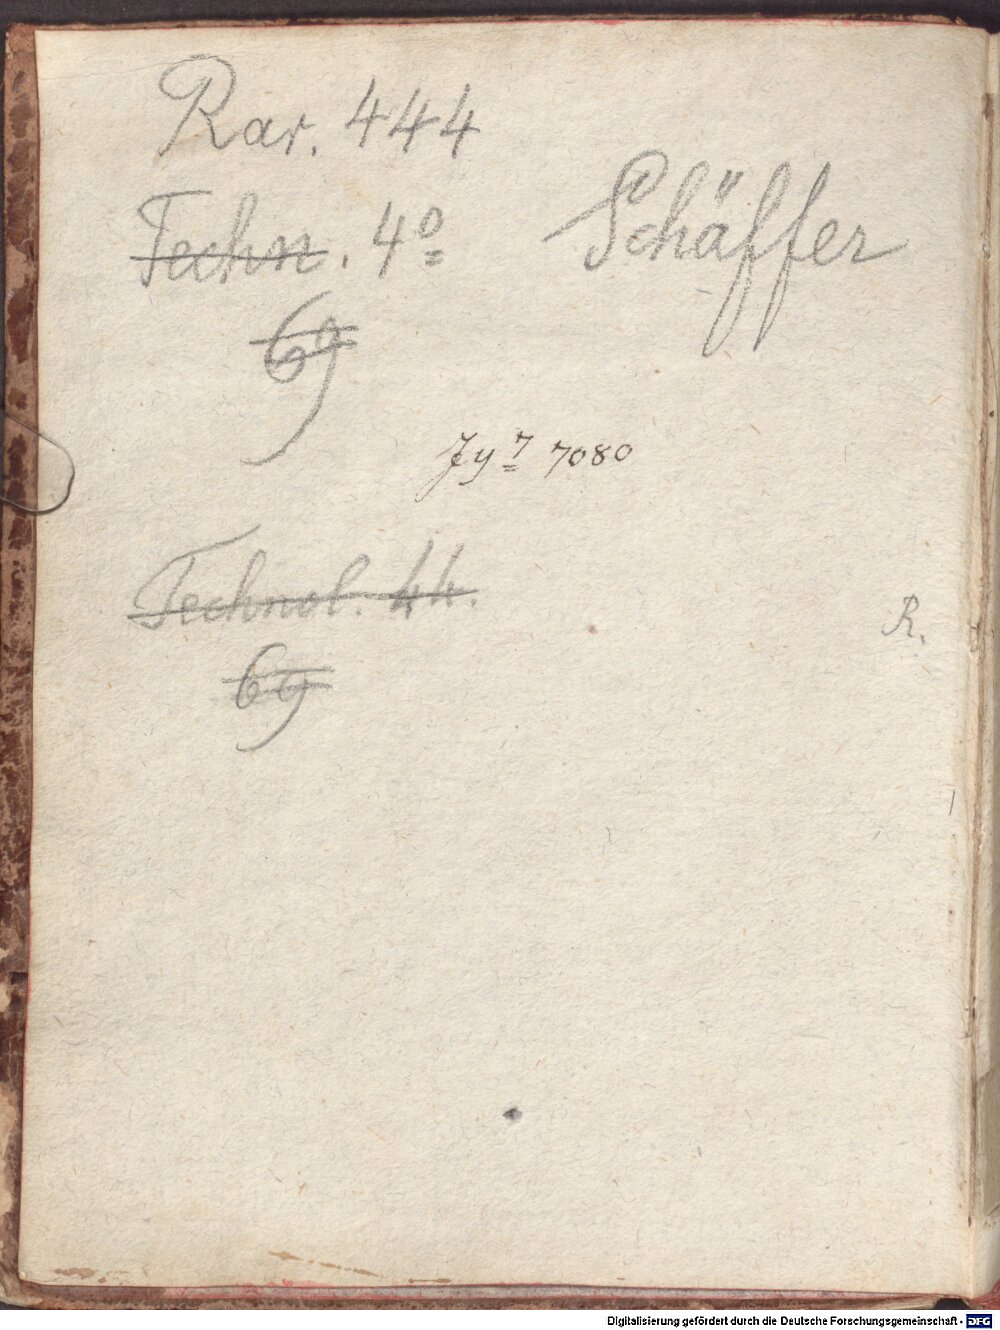 Rar. 444
Techn. 4º
Schäffer
69
Jy 7 7080
Technol. 44.
R.
69
Digitalisierung gefördert durch die Deutsche Forschungsgemeinschaft - DFG